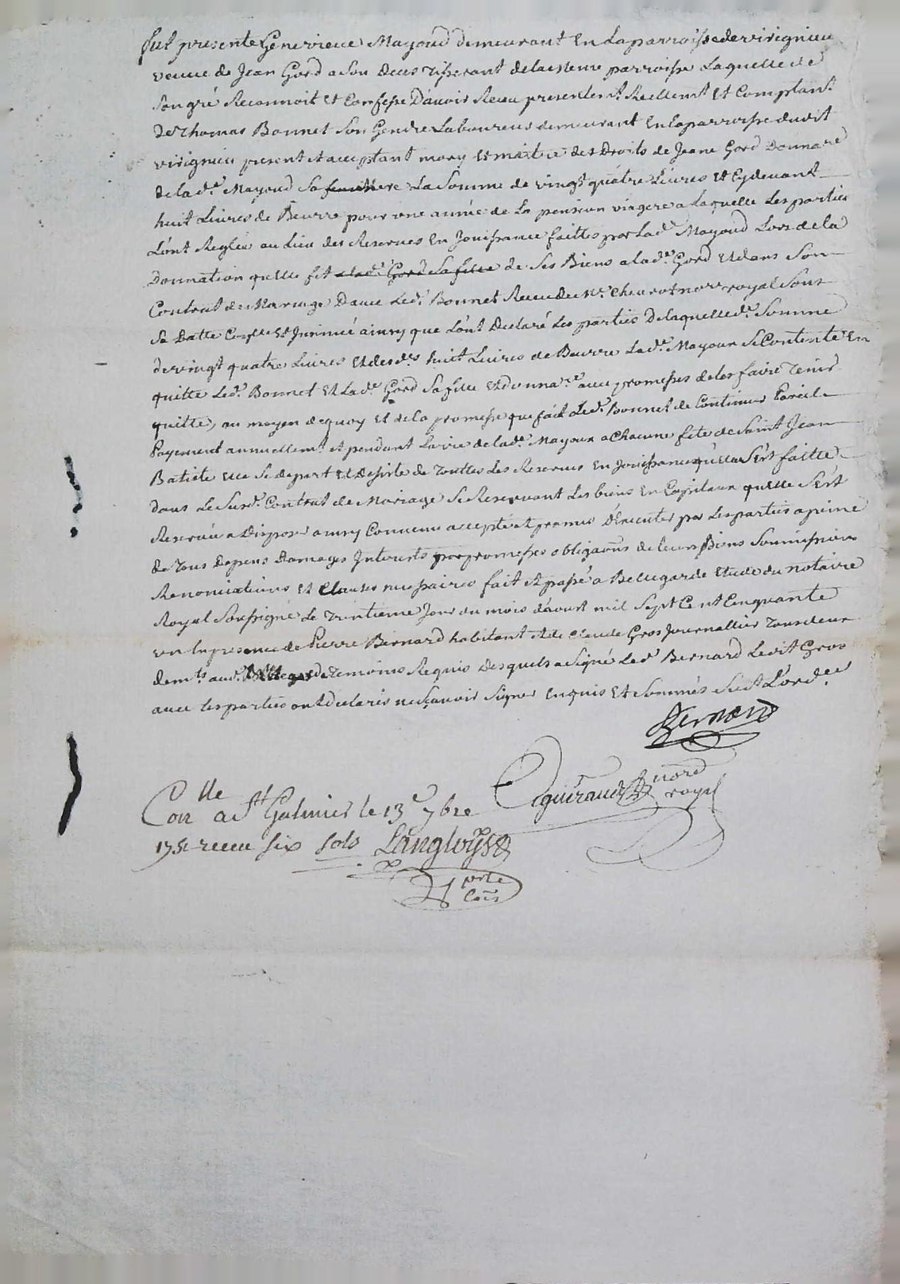 fut presente Genevieve Mayoud demeurant En La parroisse de virignieu
veuve de Jean Gord a Son Deces Tisserant de lad. meme parroisse Laquelle de
Son gré Reconnoit Et Confesse D'avoir Receu presentem.t Reellem.t Et Comptant
de Thomas Bonnet Son Gendre Laboureur demeurant En La parroisse dudit
virignieu present et acceptant mary Et maitre des Droits de Jeane Gord Donnaré
de la d.e Mayoud Sa mere La Somme de vingt quatre Livres Et Cydevant
huit Livres de Beurre pour une année de La pension viagere a laquelle Les parties
L'ont Reglée au Lieu des Reserves En Jouissance faittes par Lad.e Mayoud Lors de la
Donnation qu'elle fit a lad.e Gord Sa fille de Ses Biens a lad.e Gord Et dans Son
Contrat de Mariage D'avec Led.t Bonnet Receu de M.e not.re royal Sous
Sa Datte Con.llé Et Jnsinué ainsy que L'ont Declaré Les parties De laquelle d.e Somme
de vingt quatre Livres Et desd.s huit Livres de Beurre Lad.e Mayoux Se Contente En
quitte Led.t Bonnet Et Lad.e Gord Sa fille Et donna.re avec promesses de les faire Tenir
quitte, au moyen de quoy Et de la promesse que fait Led.t Bonnet de Continuer Pareil
Payement annuellem.t et pendant La vie de lad.e Mayoux a Chacune fete de Saint Jean
Batiste Elle Se depart Et desiste de Touttes Les Reserves En Jouissance qu'elle S'est faitte
dans Le Susd. Contrat de Mariage Se Reservant Les biens En Capitaux qu'elle S'est
Reservée a Disposer ainsy Convenu accepté et promis D'Executer par Les parties a peine
de Tous Depens Domages Interests par promesses obligations de leurs Biens Soumissions
Renonciations Et Clauses necessaires fait Et passé a Bellegarde Etude du notaire
Royal Soussigné Le Trentieme Jour du mois d'aoust mil Sept Cent Cinquante
un En presence de Pierre Bernard habitant Et de Claude Gros Journallier Tous deux
dem.ts aud. Bellegarde Temoins Requis Desquels a Signé Led.t Bernard Ledit Gros
avec Les parties ont Declarés ne Sçavoir Signer Enquis Et Sommés Suiv.t L'ord.ce
Bernard
not.re
royal
Con.lle a S.t Galmier le 13.e 7bre
1751 receu six sols Langloys